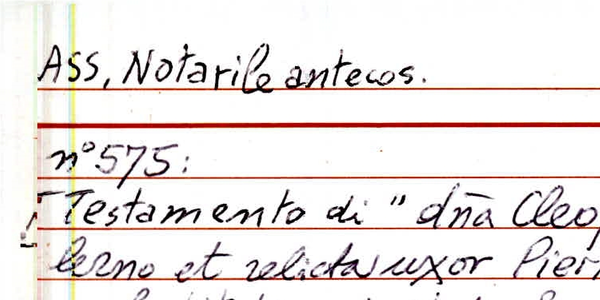 ASS, Notarile antecos.
n° 575:
Testamento di "dña Cleo
lerno et relicta uxor Pier